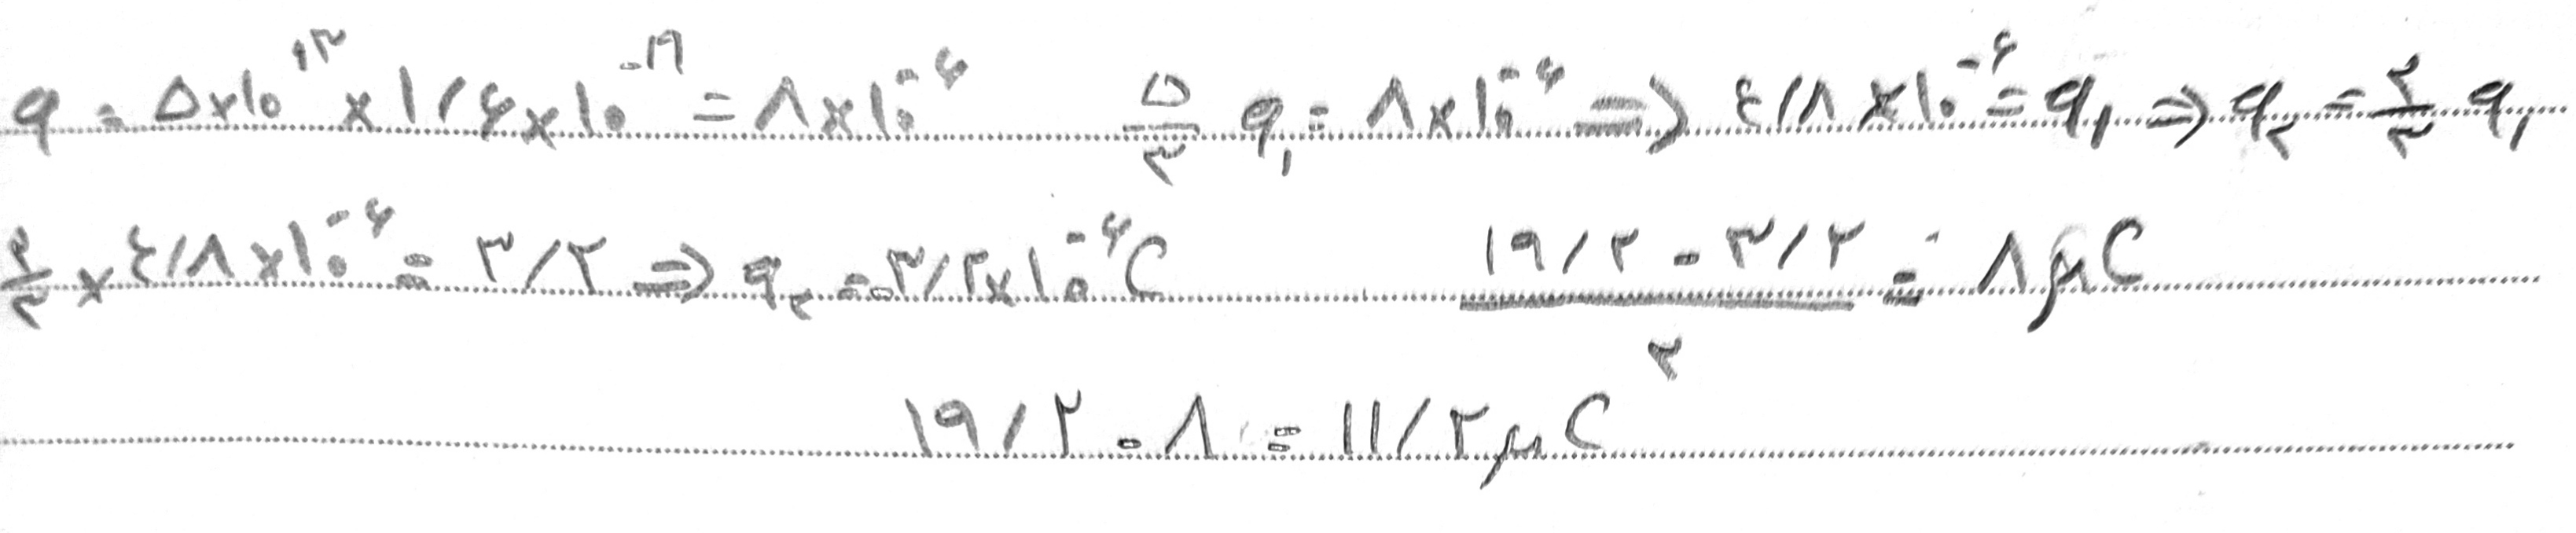 q = ۵×۱۰^۱۳ × ۱/۶×۱۰^-۱۹ = ۸×۱۰^-۶   ۵/۳ q₁ = ۸×۱۰^-۶ ⇒ ۴/۸ ×۱۰^-۶ = q₁ ⇒ q₂ = ۲/۳ q₁
۲/۳ × ۴/۸×۱۰^-۶ = ۳/۲ ⇒ q₂ = ۳/۲×۱۰^-۶ C   (۱۹/۲ - ۳/۲)/۲ = ۸ μC
۱۹/۲ - ۸ = ۱۱/۲ μC